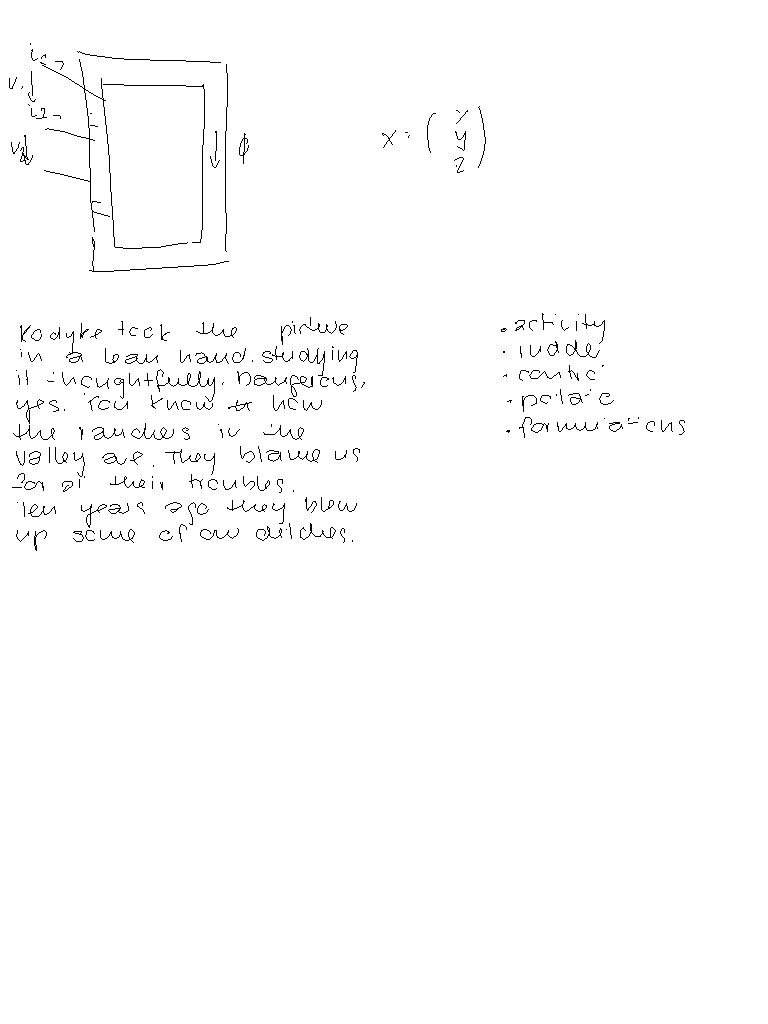 i₁
v₁
i₂
v₂
ϕ
x = ( x
y
z )
Kodyke took the picture
in a lean hand. studying
it thoughtfully. Dangerous,
yes. You know how
the ranchers in the
valley are. They blame us
for all their troubles.
Ten years ago they blew
up some of our ditches.
• activity
• rudder
•
• potato
• formulations